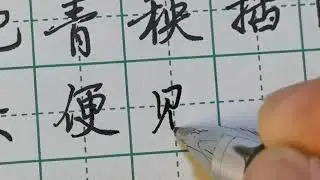 青秧插
便见